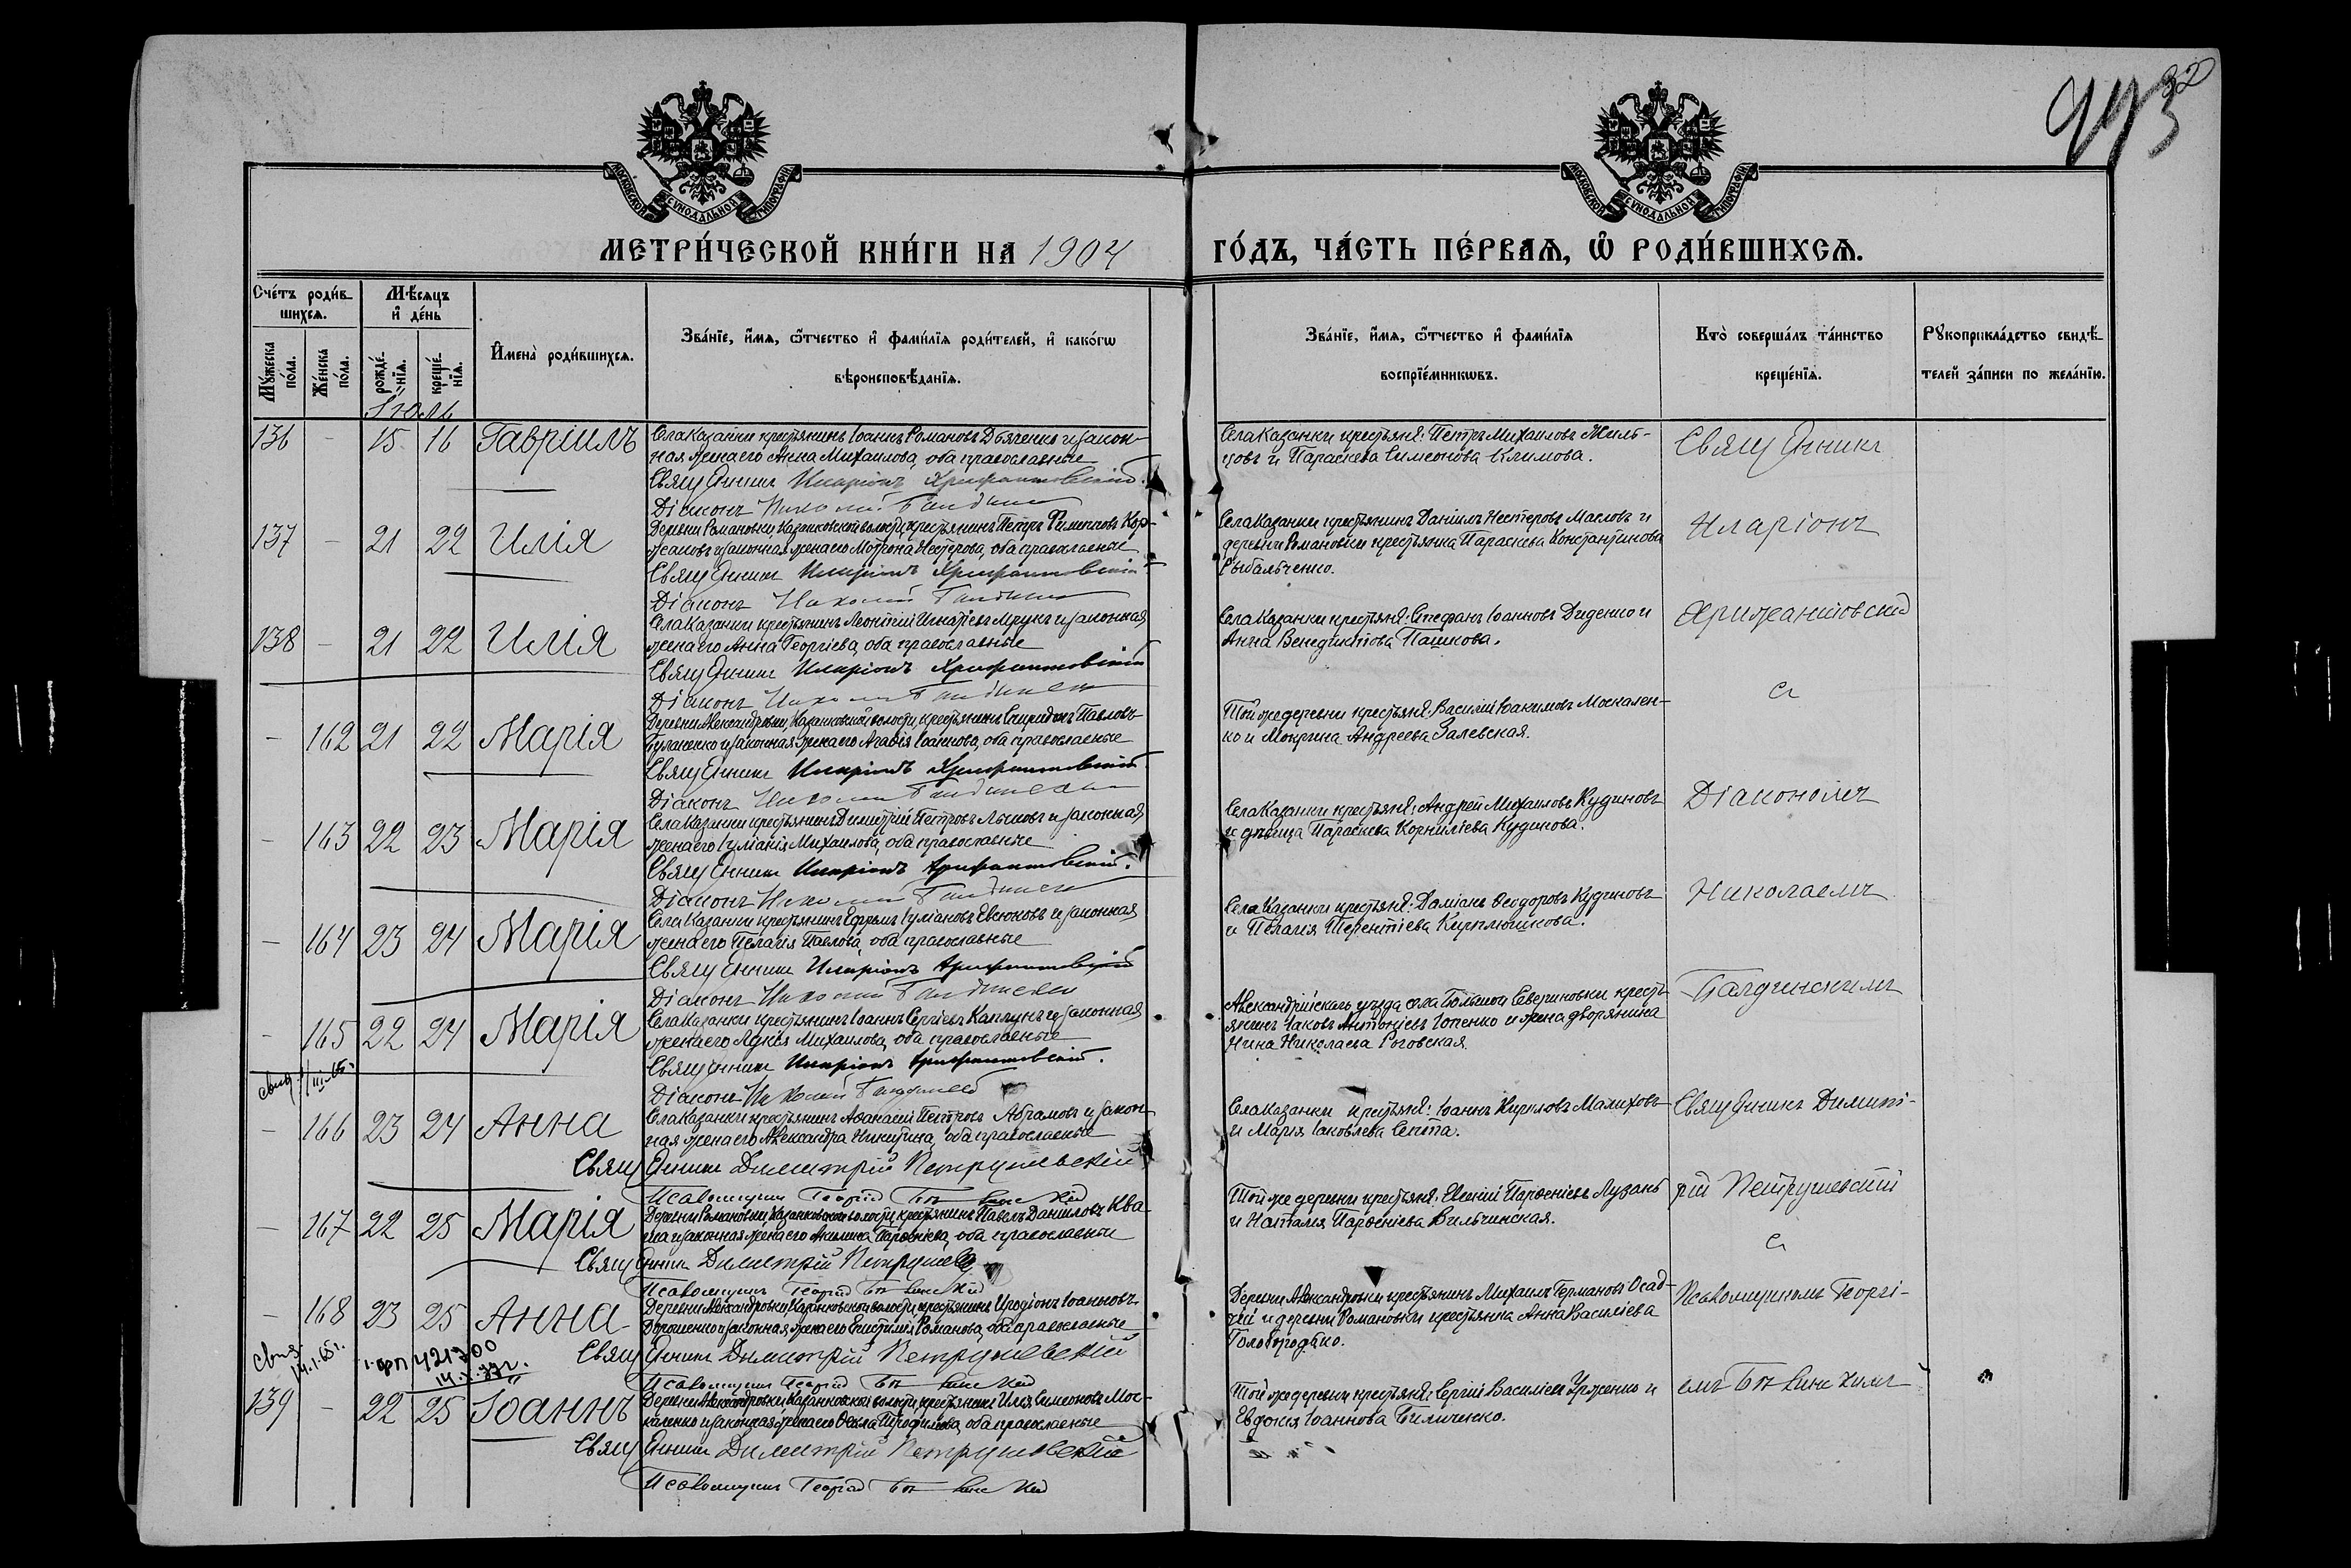 493
32
МОСКОВСКОЙ СѴНОДАЛЬНОЙ ТИПОГРАФІИ
МОСКОВСКОЙ СѴНОДАЛЬНОЙ ТИПОГРАФІИ
МЕТРИ́ЧЕСКОЙ КНИ́ГИ НА 1904 ГО́ДЪ, ЧА́СТЬ ПЕ́РВАѦ, Ѡ҆ РОДИ́ВШИХСѦ.
Сче́тъ роди́в-
шихсѧ.
Мѣ́сѧцъ
и҆ де́нь
Мꙋ́жеска по́ла.
Же́нска по́ла.
рожде́-нїѧ.
креще́-нїѧ.
И҆мена̀ роди́вшихсѧ.
Зва́нїе, и҆́мѧ, ѻ҆́тчество и҆ фами́лїѧ роди́телей, и҆ како́гѡ
вѣроисповѣ́данїѧ.
Зва́нїе, и҆́мѧ, ѻ҆́тчество и҆ фами́лїѧ
воспрїе́мникѡвъ.
Кто̀ соверша́лъ та́инство
креще́нїѧ.
Рꙋкоприкла́дство свидѣ́-
телей за́писи по жела́нїю.
Іюль
136 - 15 16 Гавріилъ
Села Казанки крестьянинъ Іоаннъ Романовъ Дьяченко и закон-
ная жена его Анна Михаилова, оба православные
Священникъ Иларіонъ Хрижантовскій
Діаконъ Николай
Села Казанки крестьяне: Петръ Михаиловъ Жиль-
цовъ и Параскева Симеонова Климова.
Священникъ
137 - 21 22 Илія
Деревни Романовки, Казанковской волости, крестьянинъ Петръ Филипповъ Кор-
жаковъ и законная жена его Мотрона Нестерова, оба православные
Священникъ Иларіонъ Хрижантовскій
Діаконъ Николай
Села Казанки крестьянинъ Даніилъ Нестеровъ Масловъ и
деревни Романовки крестьянка Параскева Константинова
Рыбальченко.
Иларіонъ
138 - 21 22 Илія
Села Казанки крестьянинъ Леонтій Игнатіевъ Мрукъ и законная
жена его Анна Георгіева, оба православные
Священникъ Иларіонъ Хрижантовскій
Діаконъ Николай
Села Казанки крестьяне: Стефанъ Іоанновъ Диденко и
Анна Венедиктова Пашкова.
Хрижантовскій
съ
- 162 21 22 Марія
Деревни Александровки, Казанковской волости, крестьянинъ Спиридонъ Павловъ
и законная жена его Агафія Іоаннова, оба православные
Священникъ Иларіонъ Хрижантовскій
Діаконъ Николай
Той же деревни крестьяне: Василій Іоакимовъ Москален-
ко и Мокрина Андреева Залевская.
- 163 22 23 Марія
Села Казанки крестьянинъ Димитрій Петровъ и законная
жена его Іуліанія Михаилова, оба православные
Священникъ Иларіонъ Хрижантовскій.
Діаконъ Николай
Села Казанки крестьяне: Андрей Михаиловъ Кудиновъ
и дѣвица Параскева Корниліева Кудинова.
Діакономъ
- 164 23 24 Марія
Села Казанки крестьянинъ Ефремъ Іуліановъ Евсюковъ и законная
жена его Пелагія Павлова, оба православные
Священникъ Иларіонъ Хрижантовскій
Діаконъ Николай
Села Казанки крестьяне: Даміанъ Ѳеодоровъ Кудиновъ
и Пелагія Терентіева
Николаемъ
- 165 22 24 Марія
Села Казанки крестьянинъ Іоаннъ Сергіевъ Каплунъ и законная
жена его Михаилова, оба православные
Священникъ Иларіонъ Хрижантовскій.
Діаконъ Николай
Александрійскаго уѣзда села Большой Севериновки кресть-
янинъ Іаковъ Антоніевъ Іопенко и жена дворянина
Нина Николаева Роговская.
- 166 23 24 Анна
Села Казанки крестьянинъ Аѳанасій Петровъ Абрамовъ и закон-
ная жена его Александра Никитина, оба православные
Священникъ Димитрій Петрушевскій
Псаломщикъ Георгій
Села Казанки крестьяне: Іоаннъ Кириловъ Малиховъ
и Марія Іаковлева Сепита.
Священникъ Димит-
- 167 22 25 Марія
Деревни Романовки, Казанковской волости, крестьянинъ Павелъ Даниловъ Ква-
ша и законная жена его Акилина Парѳеніева, оба православные
Священникъ Димитрій
Псаломщикъ Георгій
Той же деревни крестьяне: Евгеній Парѳеніевъ Лузанъ
и Наталія Парѳеніева Вильчинская.
рій Петрушевскій
съ
- 168 23 25 Анна
Деревни Александровки, Казанковской волости, крестьянинъ Иродіонъ Іоанновъ
Дорошенко и законная жена его Епистимія Романова, оба православные
Священникъ Димитрій Петрушевскій
Псаломщикъ Георгій
Деревни Александровки крестьянинъ Михаилъ Германовъ Осад-
чій и деревни Романовки крестьянка Анна Василіева
Голобородько.
Псаломщикомъ Георгі-
14.1.65г.
421700
139 - 22 25 Іоаннъ
Деревни Александровки, Казанковской волости, крестьянинъ Илія Симеоновъ Мос-
каленко и законная жена его Ѳекла Трофимова, оба православные
Священникъ Димитрій Петрушевскій
Псаломщикъ Георгій
Той же деревни крестьяне: Сергій Василіевъ и
Евдокія Іоаннова Биличенко.
емъ